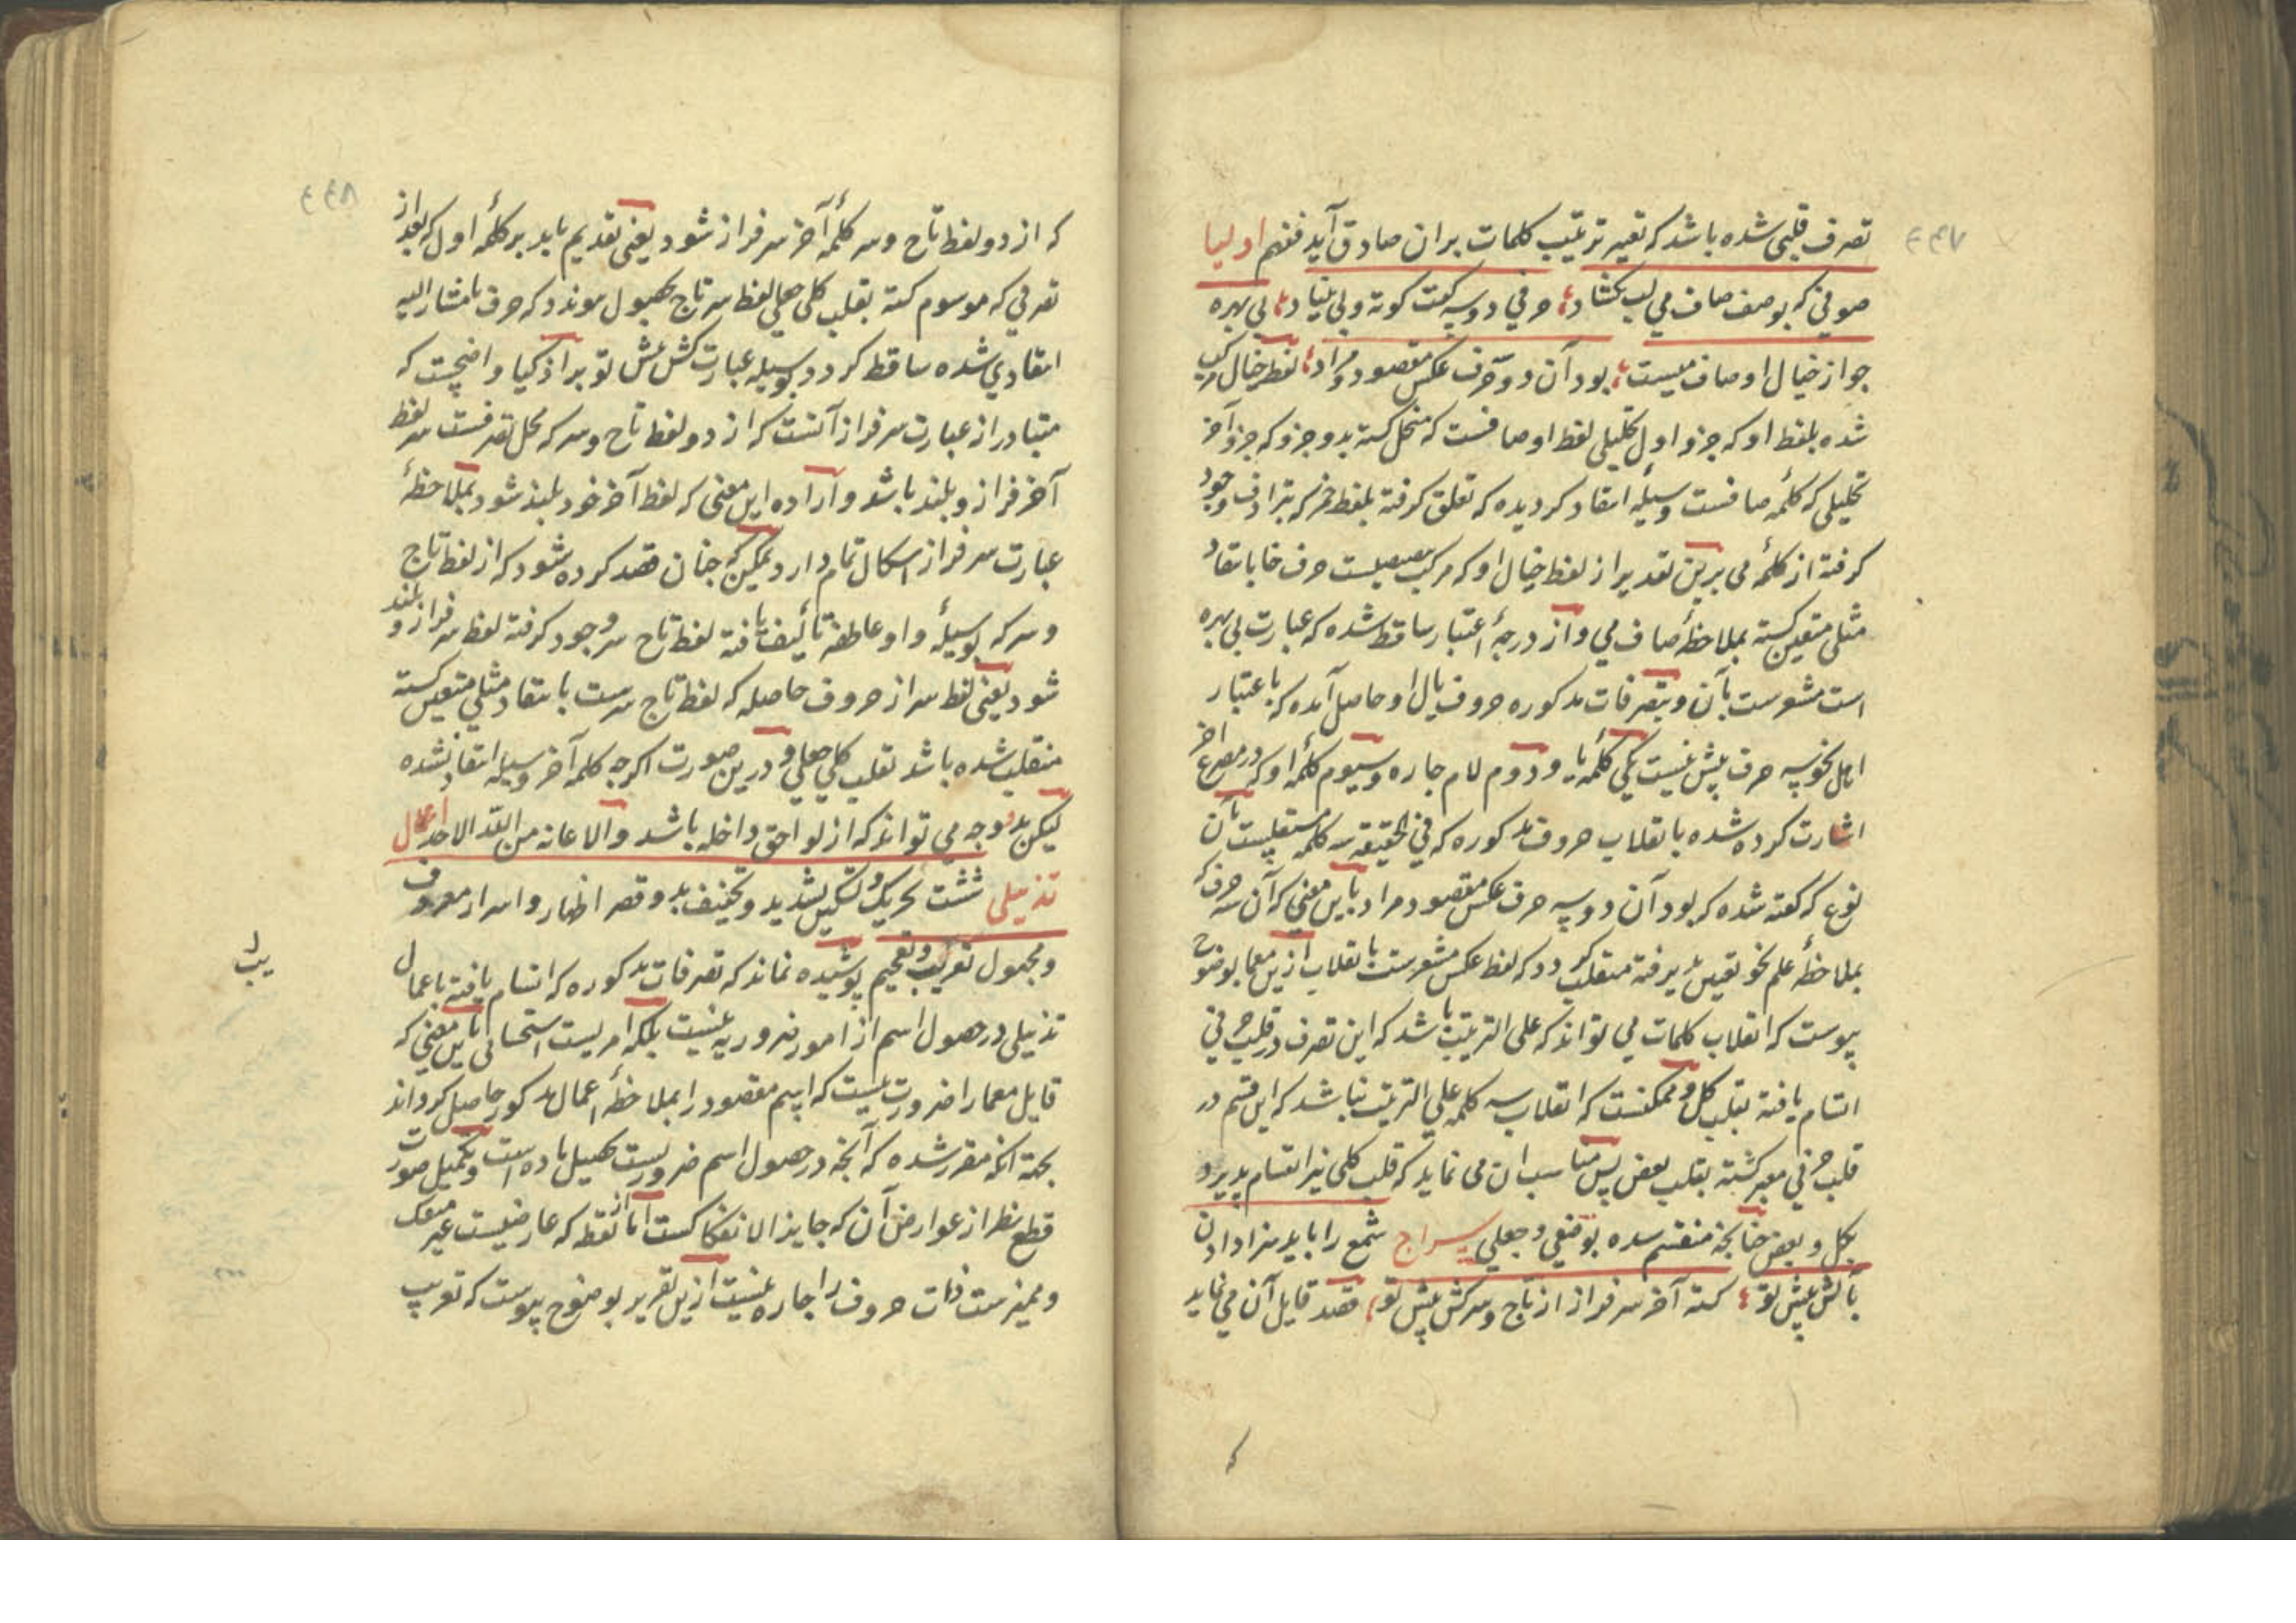 ۴۴۷
تصرف قلبی شده باشد که تغیر ترتیب کلمات بران صادق آید فنهم اولیا
صوفی که بوصف صاف می لب کشاد حرفی دو سه کفت کوته و بی بنیاد بی بهره
جو از خیال اوصاف میست بود آن دو حرف عکس مقصود و مراد لفظ خیال مرکب
شده بلفظ او که جزو اول تحلیلی لفظ اوصافست که منحل کسته بدو جزو که جزو آخر
تحلیلی که کلمهٔ صافست وسیلهٔ انتقاد کردیده که تعلق کرفته بلفظ خمر که بترادف وجود
کرفته از کلمهٔ می برین تقدیر از لفظ خیال او که مرکب حرف خا بانتقاد
مثلی متعین کسته بملاحظهٔ صاف می و از درجهٔ اعتبار ساقط شده که عبارت بی بهره
است مشعرست بآن و بتصرفات مدکوره حروف یال او حاصل آمده که باعتبار
اهل نحو سه حرف بیش نیست یکی کلمهٔ یا و دوم لام جاره و سیوم کلمهٔ او که در مصرع آخر
اشارت کرده شده بانقلاب حروف مدکوره که فی الحقیقة سه کلمه مستقلست بآن
نوع که کفته شده که بود آن دو سه حرف عکس مقصود و مراد باین معنی که آن سه حرف که
بملاحظهٔ علم نحو تعین پذیرفته منقلب کردد که لفظ عکس مشعرست بانقلاب ازین معما بوضوح
پیوست که انقلاب کلمات می تواند که علی الترتیب باشد که این تصرف در قلب حرفی
اتسام یافته بقلب کل و ممکنست که انقلاب سه کلمه علی الترتیب نباشد که این قسم در
قلب حرفی معبر کشته بقلب بعض پس مناسب ان می نماید که قلب کلمی نیز انقسام پدیرد
بکل و بعض جنانجه منقسم سده بوضعی و جعلی سراج شمع را باید سزا دادن
بآتش پیش تو کسته آخر سرفراز از تاج و سرکش پیش تو قصد قایل آن می نماید
که
۴۴۸
که از دو لفظ تاج و سر کلمهٔ آخر سرفراز شود یعنی تقدیم یابد بر کلمهٔ اول که بعد از
تصرفی که موسوم کسته بقلب کلی جعلی لفظ سر تاج بحصول موندد که حرف تا مشار الیه
انتقادی شده ساقط کردد بوسیله عبارت کش پیش تو بر اذکیا واضحست که
متبادر از عبارت سرفراز آنست که از دو لفظ تاج و سر که محل تصرفست سر لفظ
آخر فراز و بلند باشد و ارادهٔ این معنی که لفظ آخر خود بلند شود بملاحظهٔ
عبارت سرفراز اسکال تمام دارد ممکن که جنان قصد کرده شود که از لفظ تاج
و سر که بوسیلهٔ واو عاطفه تألیف یافته لفظ تاج سر وجود کرفته لفظ سر فراز و بلند
شود یعنی لفظ سر از حروف حاصله که لفظ تاج سرست بانتقاد مثلی متعین کسته
منقلب شده باشد بقلب کلی جعلی و درین صورت اکرجه کلمه آخر وسیله انتقاد نشده
لیکن بدو وجه می تواند که از لواحق داخله باشد والاعانة من الله الاحد اعمال
تذییلی شست تحریک و تسکین تشدید و تخفیف مد و قصر اظهار و اسرار معروف
و مجهول تعریب و تعجیم پوشیده نماند که تصرفات مدکوره که اتسام یافته باعمال
تذییلی در حصول اسم از امور ضروریه نیست بلکه امریست استحسانی باین معنی که
قایل معما را ضرورت نیست که اسم مقصود را بملاحظهٔ اعمال مدکور حاصل کرداند
بجهة انکه مقرر شده که آنجه در حصول اسم ضروریست تحصیل ماده است و تکمیل صورت
قطع نظر از عوارض آن که جایز الانفکاکست اما از نقط که عارضیست غیر منفک
و ممیزست ذات حروف را جاره نیست ازین تقریر بوضوح پیوست که تعریب